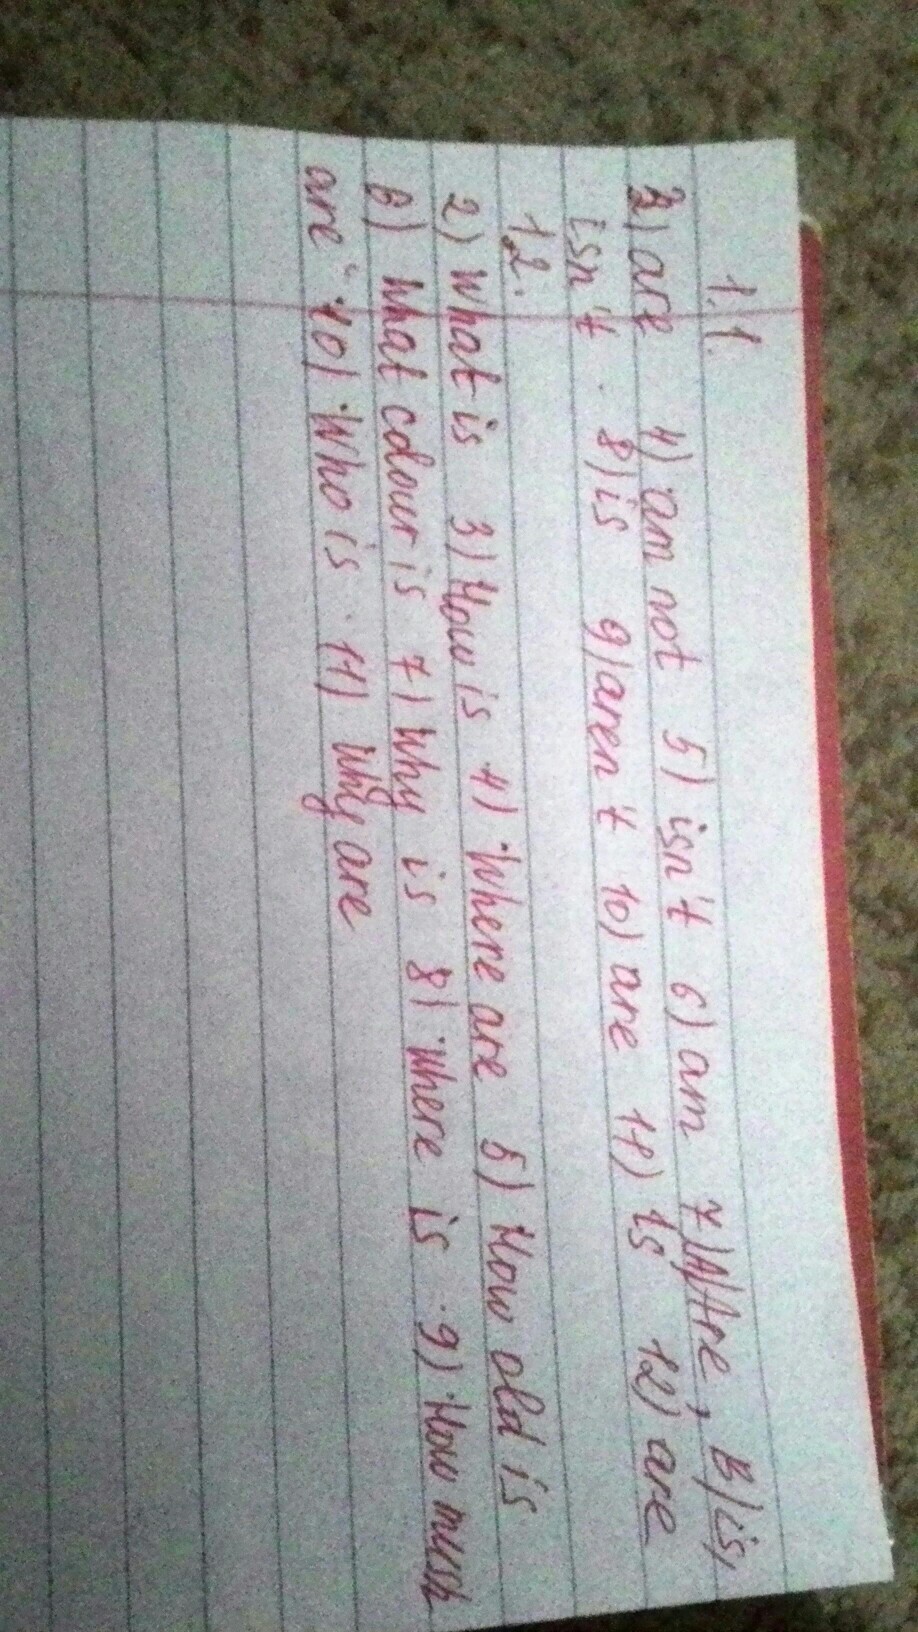 1.1.
3) are 4) am not 5) isn't 6) am 7) A) Are, B) is,
isn't. 8) is 9) aren't 10) are 11) is 12) are
1.2.
2) What is 3) How is 4) Where are 5) How old is
6) What colour is 7) Why is 8) Where is 9) How much
are 10) Who is 11) Why are